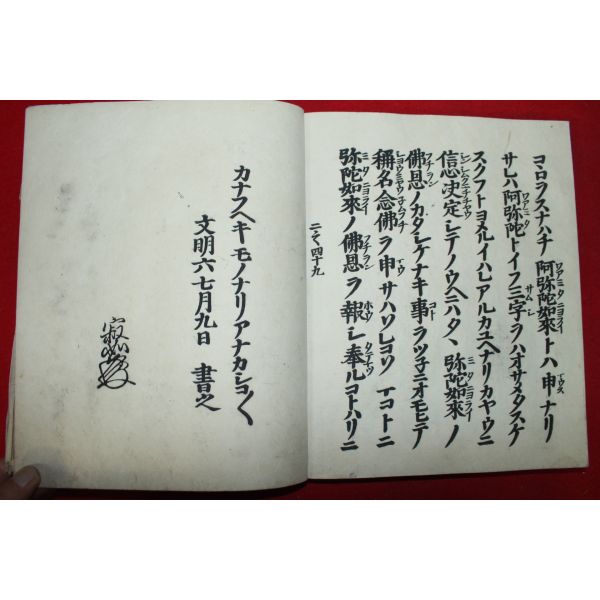 コヽロスナハチ阿弥陀如來トハ申ナリ
サレハ阿弥陀トイフ三字ヲハオサメタスケ
スクフトヨメルイハレアルカユヘナリカヤウニ
信心决定シテノウヘニハタヽ弥陀如來ノ
佛恩ノカタシケナキ事ヲツ子ニオモヒテ
稱名念佛ヲ申サハソレコソマコトニ
弥陀如來ノ佛恩ヲ報シ奉ルコトハリニ
四十九
カナフヘキモノナリアナカシコ〳〵
文明六七月九日 書之